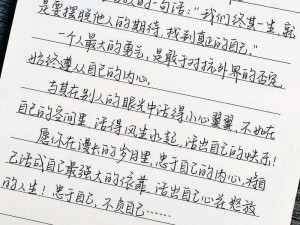 的一句话："我们终其一生,就
是要摆脱他人的期待,找到真正的自己。"
一个人最大的勇气,是敢于对抗外界的否定,
始终遵从自己的内心。
与其在别人的眼光中活得小心翼翼,不如在
自己的空间里,活得风生水起,活出自己的快乐!
愿你在漫长的岁月里,忠于自己的内心,将自
己活成自己最强大的依靠,活出自己心花怒放
的人生!忠于自己,不负自己……